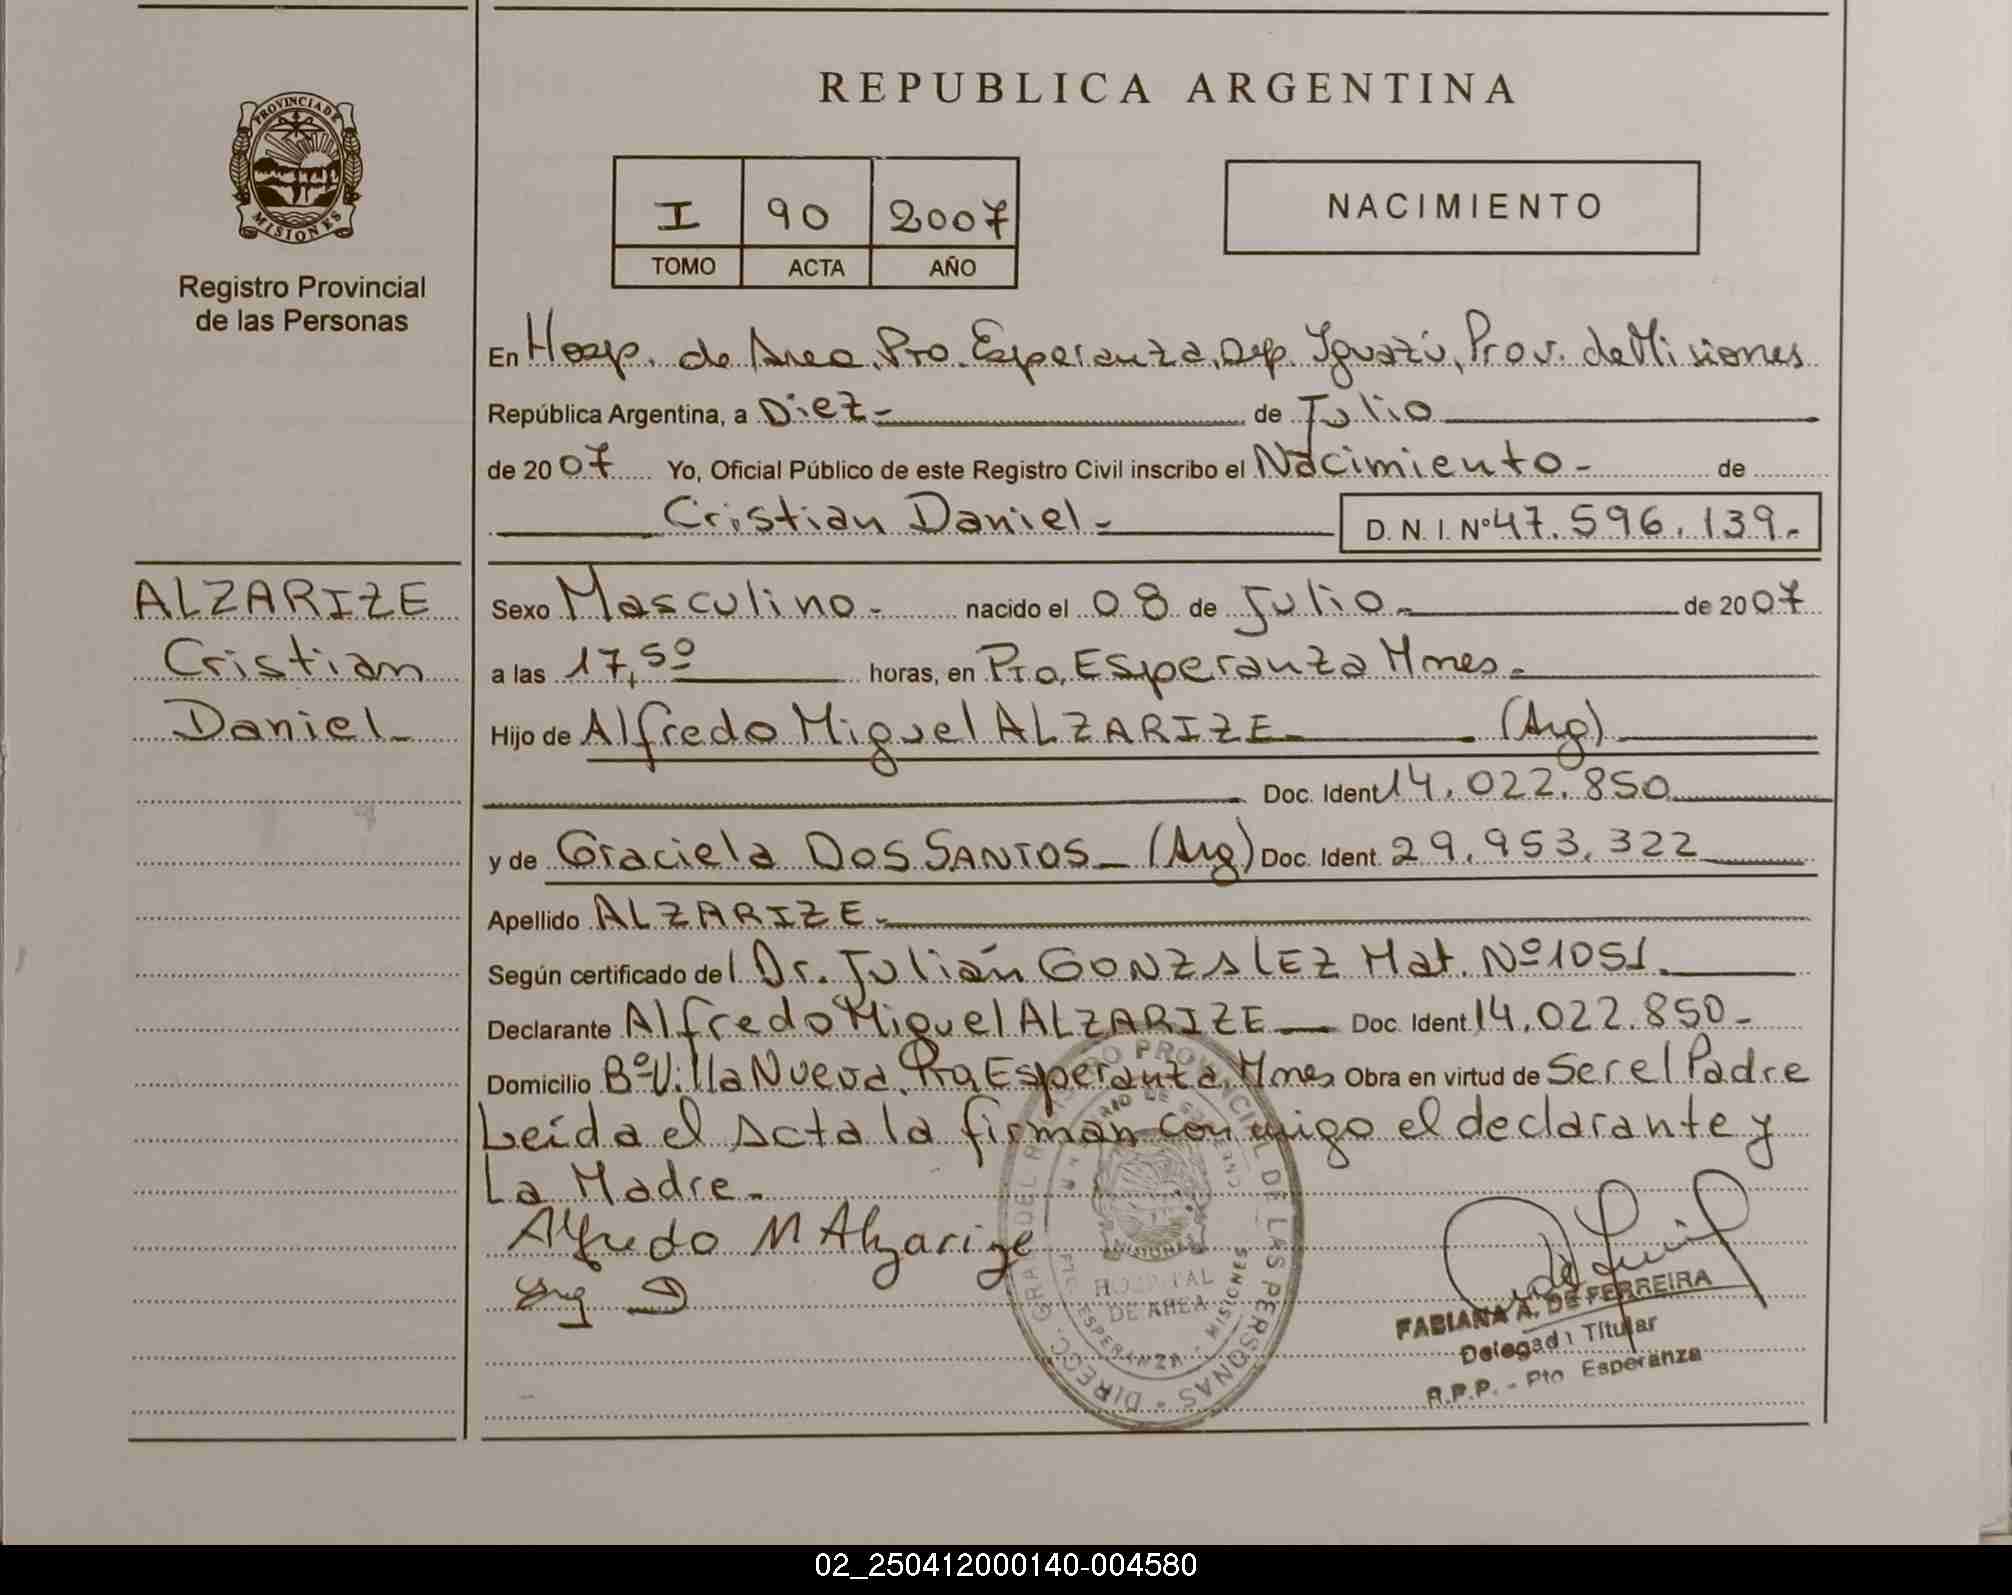 REPUBLICA ARGENTINA
PROVINCIA DE
MISIONES
Registro Provincial
de las Personas
I 90 2007
TOMO ACTA AÑO
NACIMIENTO
En Hosp. de Area, Pto. Esperanza, Dep. Iguazú, Prov. de Misiones
República Argentina, a Diez - de Julio
de 2007 Yo, Oficial Público de este Registro Civil inscribo el Nacimiento - de
Cristian Daniel - D. N. I. Nº 47.596.139.-
ALZARIZE
Cristian
Daniel -
Sexo Masculino - nacido el 08 de Julio - de 2007
a las 17,50 horas, en Pto. Esperanza Mnes -
Hijo de Alfredo Miguel ALZARIZE - (Arg)
Doc. Ident 14.022.850
y de Graciela DOS SANTOS - (Arg) Doc. Ident. 29.953.322
Apellido ALZARIZE -
Según certificado del Dr. Julián GONZALEZ Mat. Nº 1051.
Declarante Alfredo Miguel ALZARIZE - Doc. Ident 14.022.850 -
Domicilio Bº Villa Nueva, Pto Esperanza, Mnes Obra en virtud de Ser el Padre
Leída el Acta la firman conmigo el declarante y
La Madre -
Alfredo M Alzarize
DIRECC. GRAL DEL REGISTRO PROVINCIAL DE LAS PERSONAS
MISIONES
HOSPITAL
DE AREA
ESPERANZA - MISIONES
FABIANA A. DE FERREIRA
Delegada Titular
R.P.P. - Pto Esperanza
02_250412000140-004580